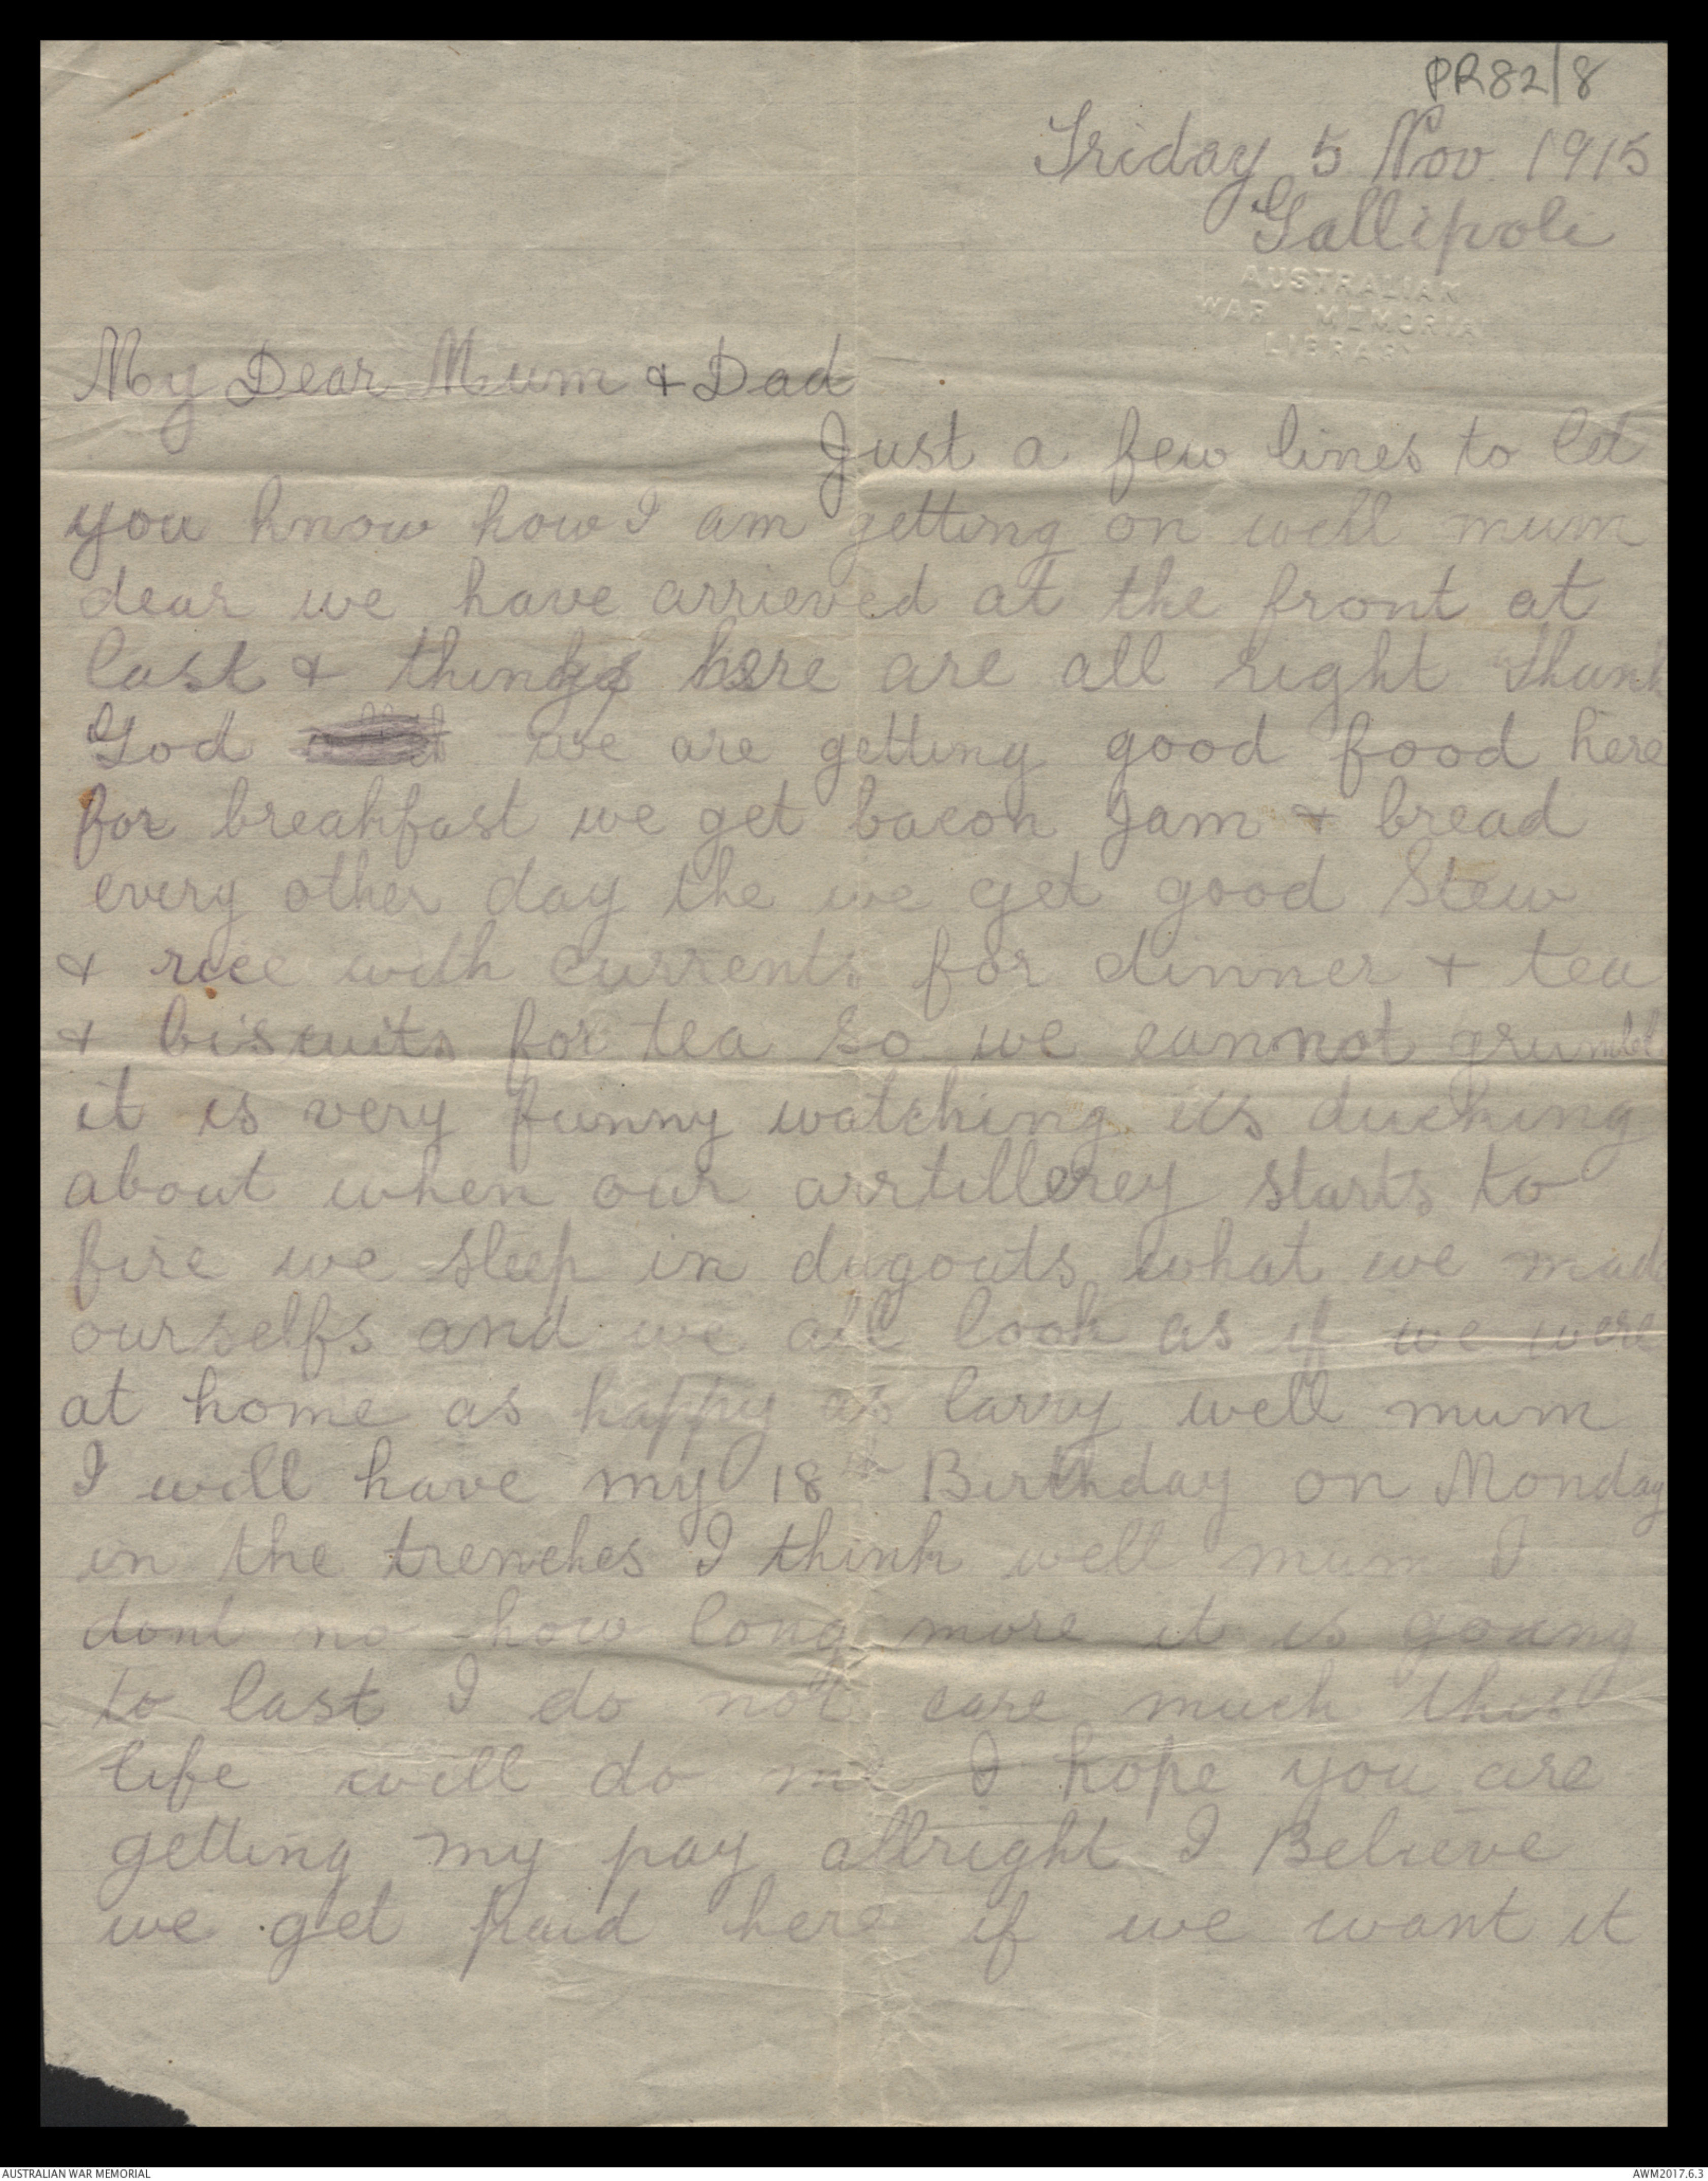 PR82/8
Friday 5 Nov 1915
Gallipoli
AUSTRALIAN
WAR MEMORIAL
LIBRARY
My Dear Mum & Dad
Just a few lines to let
you know how I am getting on well mum
dear we have arrieved at the front at
last & things here are all right Thank
God we are getting good food here
for breakfast we get bacon Jam & bread
every other day the we get good Stew
& rice with currents for dinner & tea
& biscuits for tea so we cannot grumble
it is very funny watching us ducking
about when our arrtillerey starts to
fire we sleep in dugouts what we made
ourselfs and we all look as if we were
at home as happy as larry well mum
I will have my 18th Birthday on Monday
in the trenches I think well mum I
dont no how long more it is going
to last I do not care much this
life will do me I hope you are
getting my pay allright I Believe
we get paid here if we want it
AUSTRALIAN WAR MEMORIAL
AWM2017.6.3